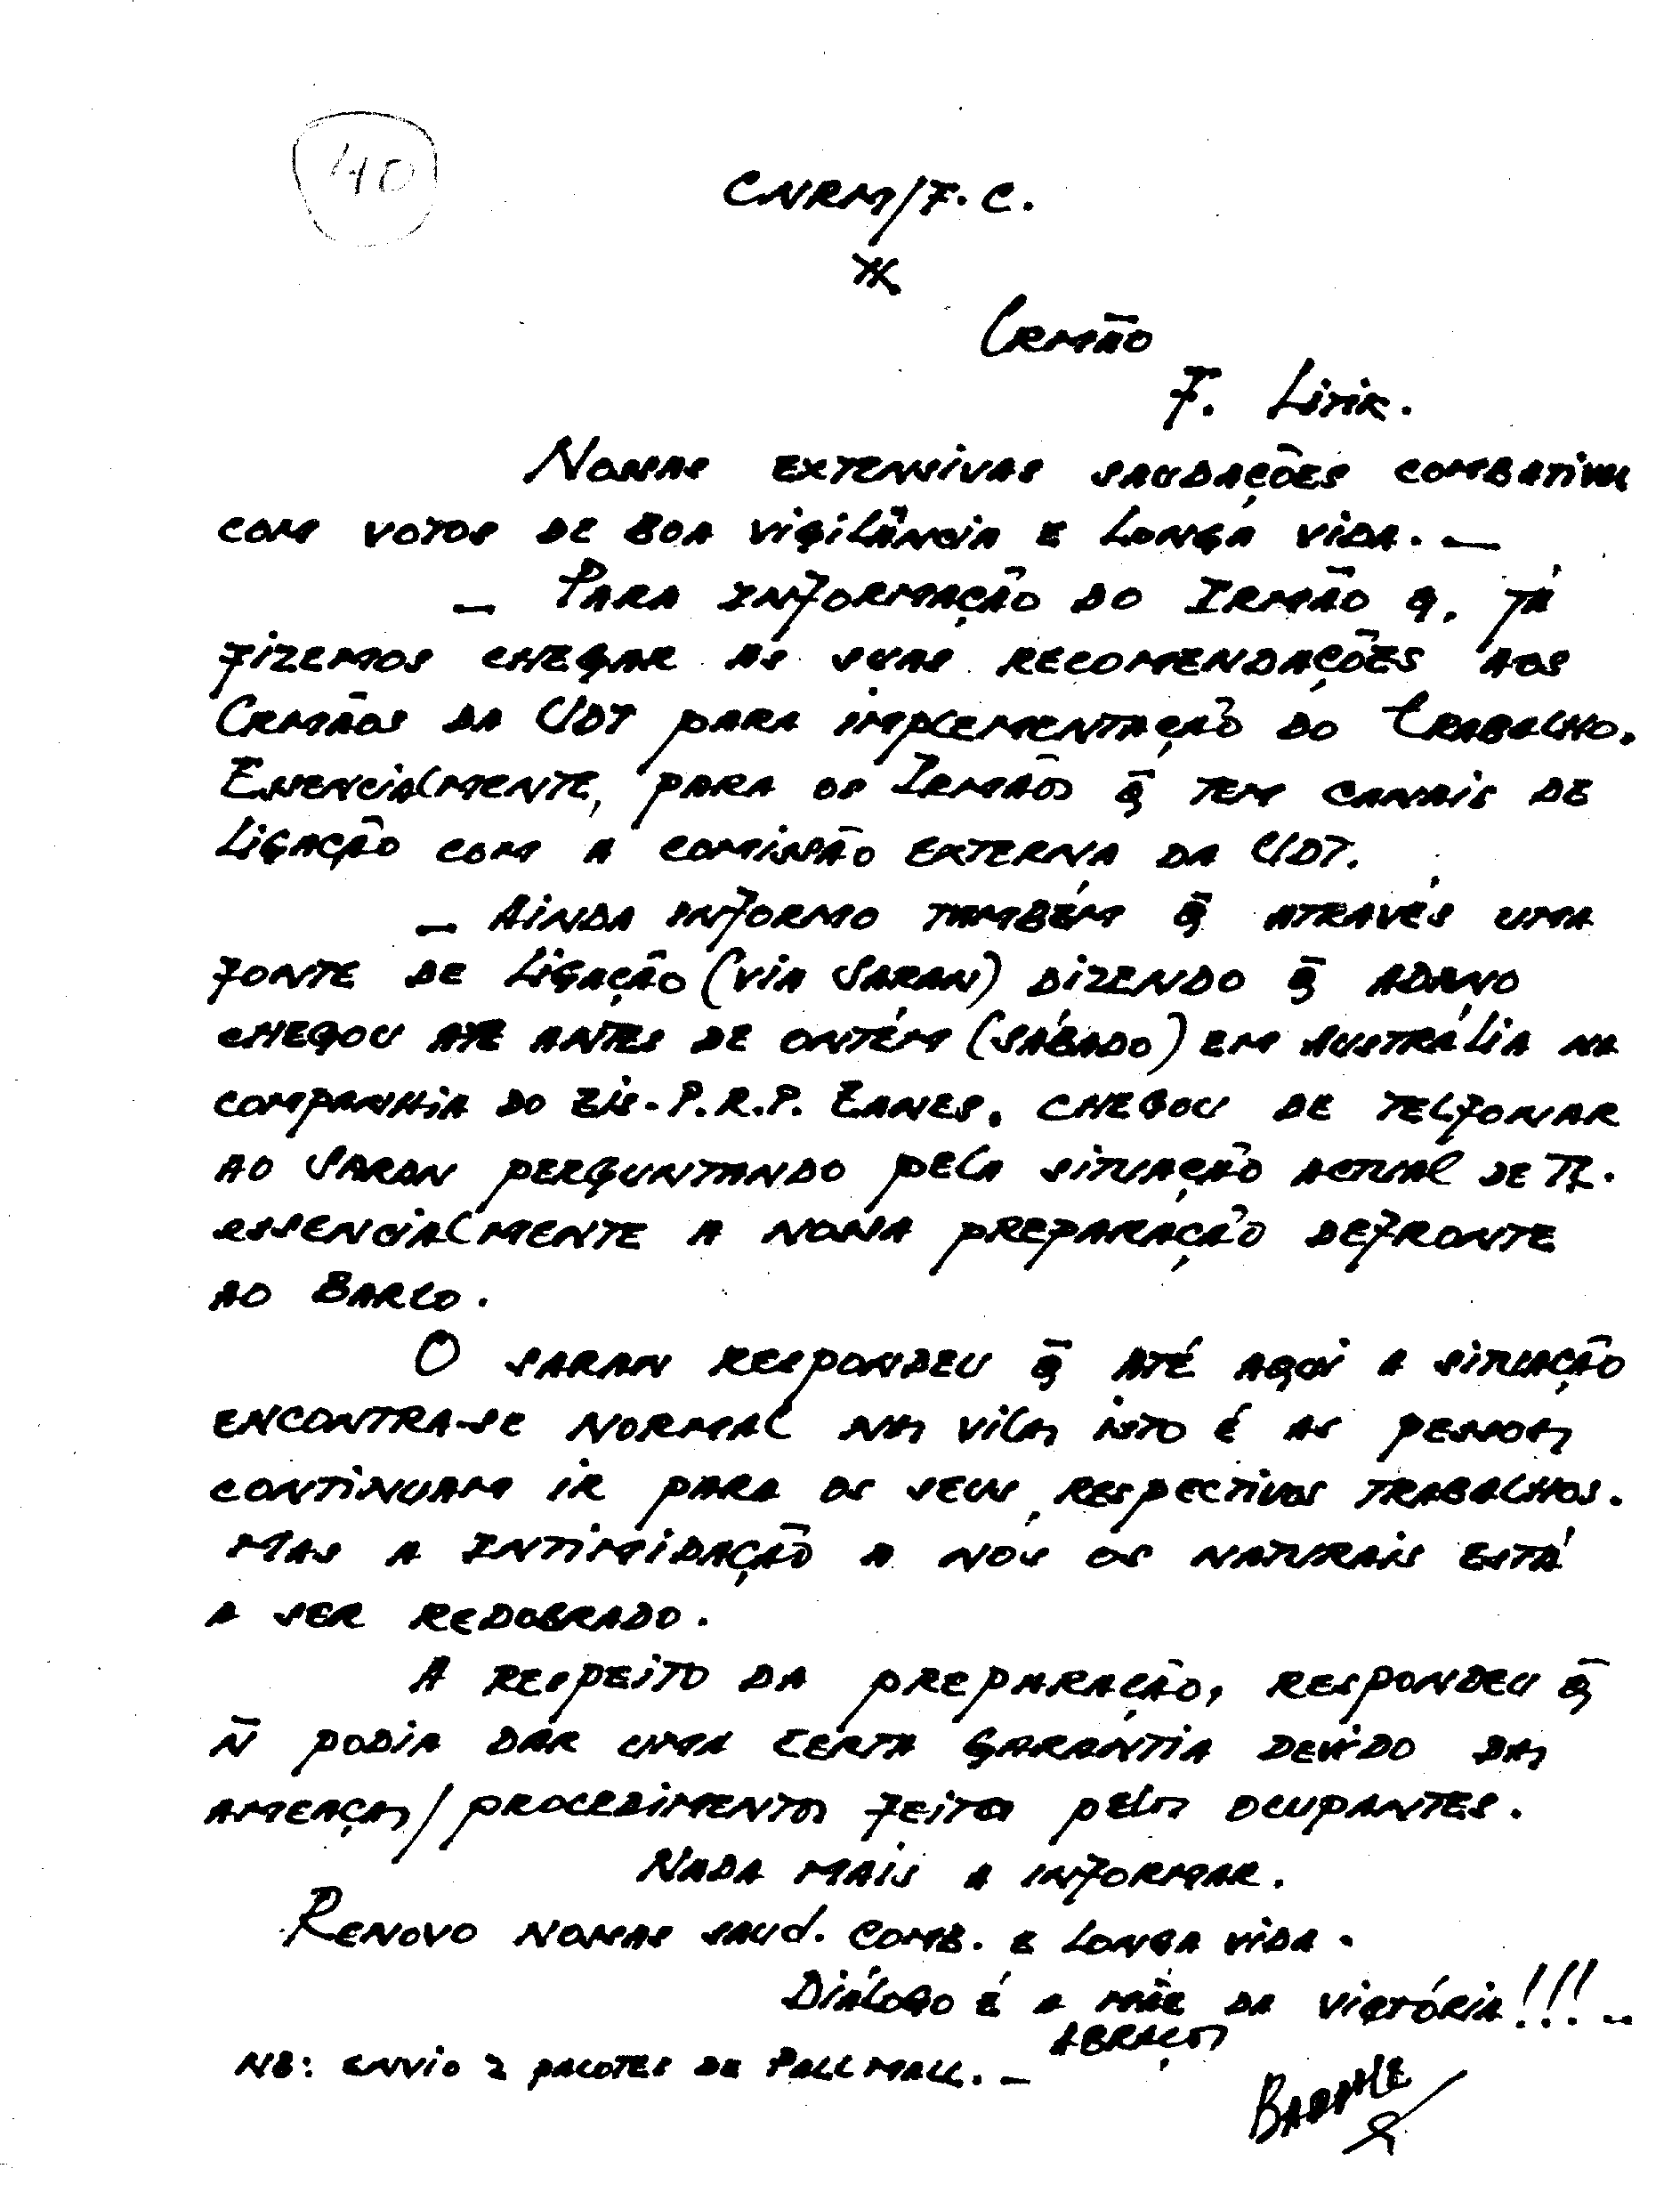 40
CNRM/F.C.
Irmão
F. Litik.
Nossas extensivas saudações combativas
com votos de boa vigilância e longa vida. —
— Para informação do Irmão q. já
fizemos chegar as suas recomendações aos
Irmãos da UDT para implementação do trabalho.
Essencialmente, para os Irmãos q̃ tem canais de
ligação com a comissão externa da UDT.
— Ainda informo também q̃ através uma
fonte de ligação (via Saran) dizendo q̃ Adano
chegou até antes de ontém (sábado) em Austrália na
companhia do Eis-P.R.P. Eanes. Chegou de telfonar
ao Saran perguntando pela situação actual de TL.
essencialmente a nossa preparação defronte
ao Barco.
O Saran respondeu q̃ até aqui a situação
encontra-se normal nas vilas isto é as pessoas
continuam ir para os seus respectivos trabalhos.
Mas a intimidação a nós os naturais está
a ser redobrado.
A respeito da preparação, respondeu q̃
ñ podia dar uma certa garantia devido das
ameaças/procedimentos feitos pelos ocupantes.
Nada mais a informar.
Renovo nossas saud. comb. e longa vida.
Diálogo é a mãe da victória!!! —
Abraços
NB: envio 2 pacotes de Pall Mall. —